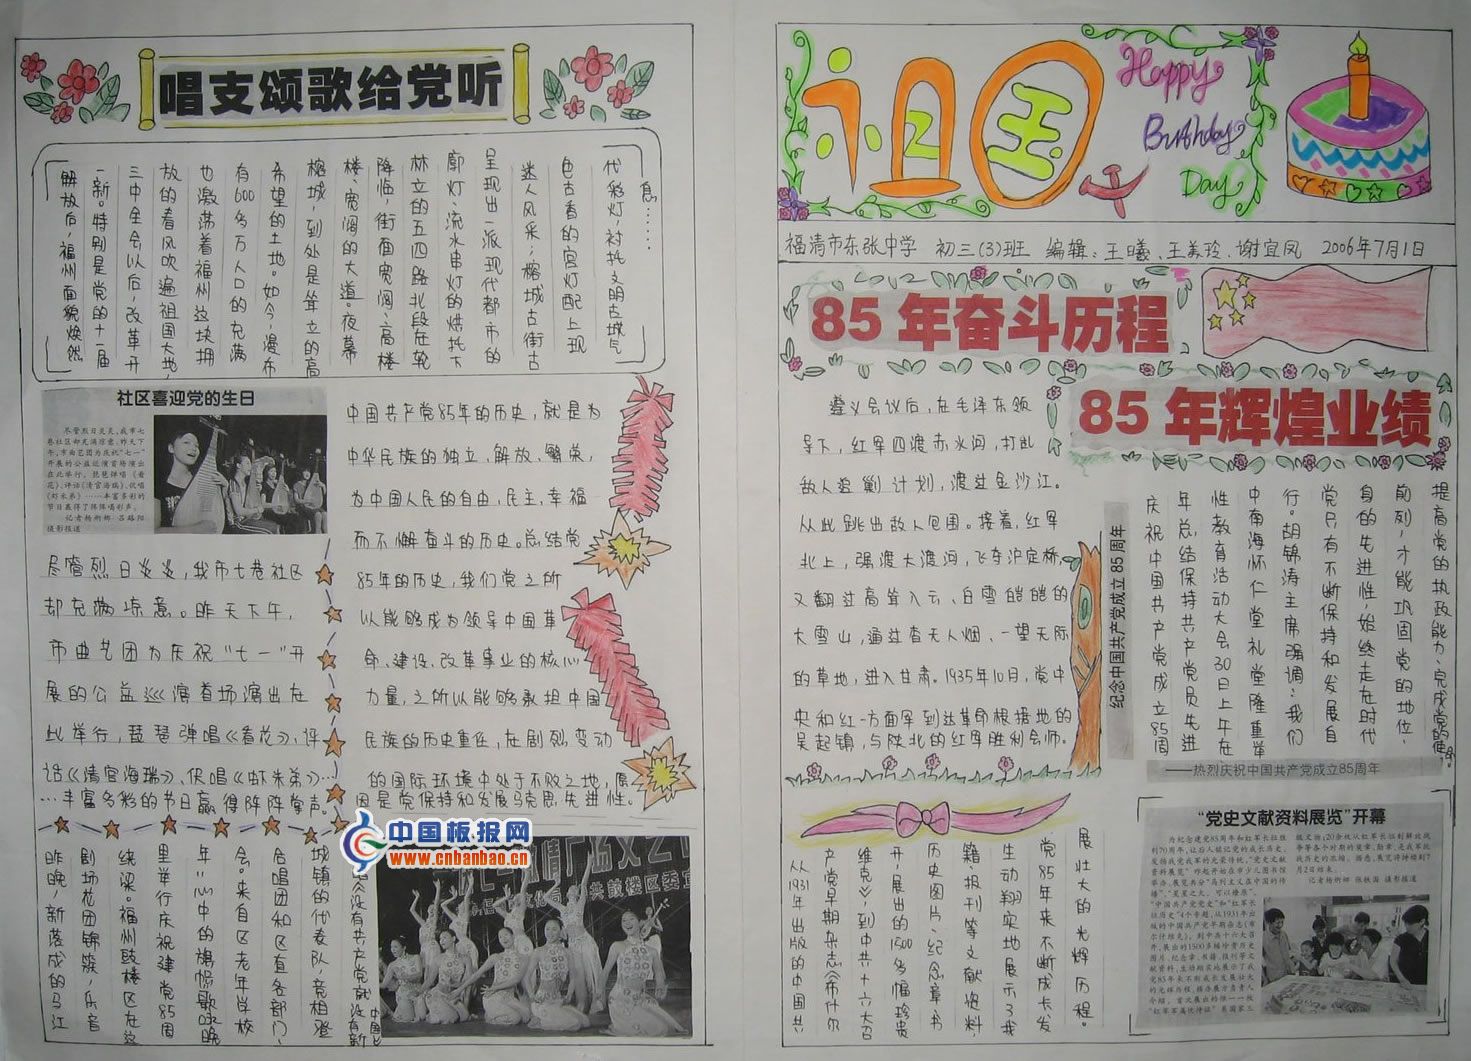 唱支颂歌给党听
解放后，福州面貌焕然
一新。特别是党的十一届
三中全会以后，改革开
放的春风吹遍祖国大地，
也激荡着福州这块拥
有600多万人口的充满
希望的土地。如今，漫步
榕城，到处是耸立的高
楼、宽阔的大道。夜幕
降临，街面宽阔、高楼
林立的五四路北段在轮
廓灯、流水串灯的烘托下
呈现出一派现代都市的
迷人风采；榕城古街古
色古香的宫灯配上现
代彩灯，衬托文明古城气
息……
社区喜迎党的生日
尽管烈日炎炎，我市七
巷社区却充满凉意。昨天下
午，市曲艺团为庆祝“七一”
开展的公益巡演首场演出
在此举行。琵琶弹唱《看
花》、评话《清官海瑞》、伬唱
《虾米弟》……丰富多彩的
节目赢得了阵阵喝彩声。
尽管烈日炎炎，我市七巷社区
却充满凉意。昨天下午，
市曲艺团为庆祝“七一”开
展的公益巡演首场演出在
此举行，琵琶弹唱《看花》、评
话《清官海瑞》、伬唱《虾米弟》…
…丰富多彩的节日赢得阵阵掌声。
中国共产党85年的历史，就是为
中华民族的独立、解放、繁荣，
为中国人民的自由，民主，幸福
而不懈奋斗的历史。总结党
85年的历史，我们党之所
以能够成为领导中国革
命、建设、改革事业的核心
力量，之所以能够承担中国
民族的历史重任，在剧烈变动
的国际环境中处于不败之地，原
因是党保持和发展马克思先进性。
中国板报网
www.cnbanbao.cn
昨晚，新落成的马江
剧场花团锦簇，乐音
绕梁。福州鼓楼区在这
里举行庆祝建党85周
年“心中的旗帜”歌咏晚
会。来自区老年学校
合唱团和区直各部门、
城镇的代表队，竞相登
《没有共产党就没有新
中国》
祖国
Happy
Birthday
Day
福清市东张中学 初三(3)班 编辑：王曦、王美玲、谢宜凤 2006年7月1日
85年奋斗历程
85年辉煌业绩
遵义会议后，在毛泽东领
导下，红军四渡赤水河，打乱
敌人追剿计划，渡过金沙江。
从此跳出敌人包围。接着，红军
北上，强渡大渡河，飞夺泸定桥，
又翻过高耸入云、白雪皑皑的
大雪山，通过杳无人烟、一望无际
的草地，进入甘肃。1935年10月，党中
央和红一方面军到达革命根据地的
吴起镇，与陕北的红军胜利会师。
纪念中国共产党成立85周年
庆祝中国共产党成立85周
年总结保持共产党员先进
性教育活动大会30日上午在
中南海怀仁堂礼堂隆重举
行。胡锦涛主席强调：我们
党只有不断保持和发展自
身的先进性，始终走在时代
前列，才能巩固党的地位、
提高党的执政能力、完成党的使命。
——热烈庆祝中国共产党成立85周年
从1931年出版的中国共
产党早期杂志《布什尔
维克》，到中共十六大召
开，展出的1500多幅珍贵
历史图片、纪念章、书
籍、报刊等文献资料，
生动翔实地展示了我
党85年来不断成长发
展壮大的光辉历程。
“党史文献资料展览”开幕